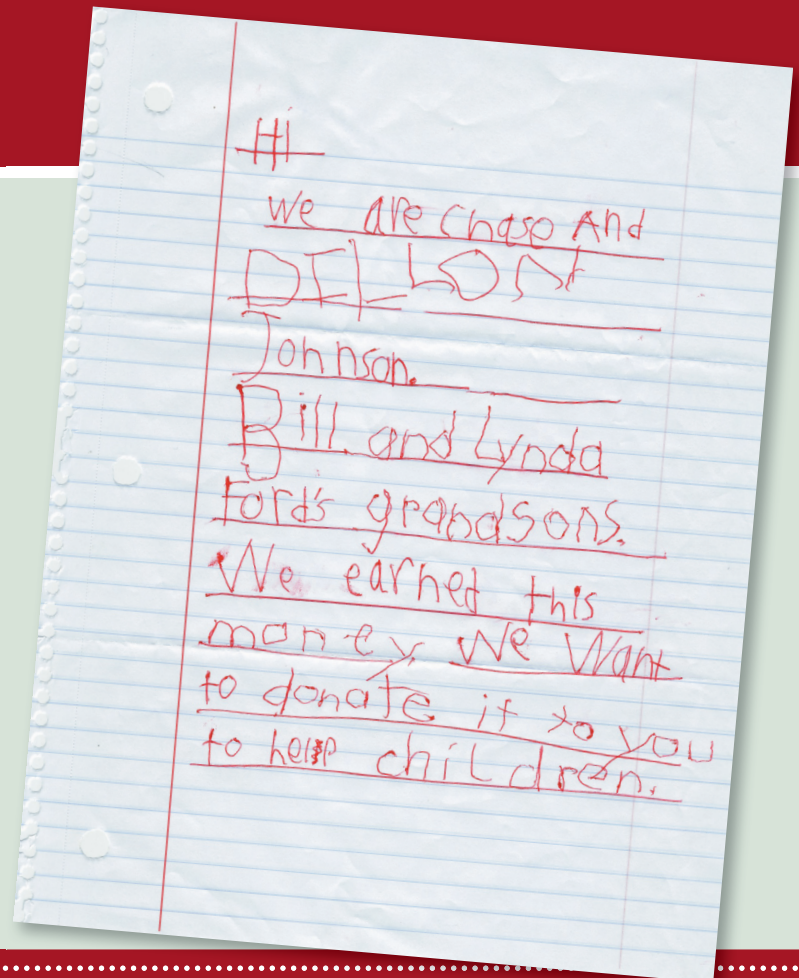 Hi
we are Chase And
DILLON
Johnson.
Bill and Lynda
Ford's grandsons.
We earned this
money. We Want
to donate it to you
to help children.